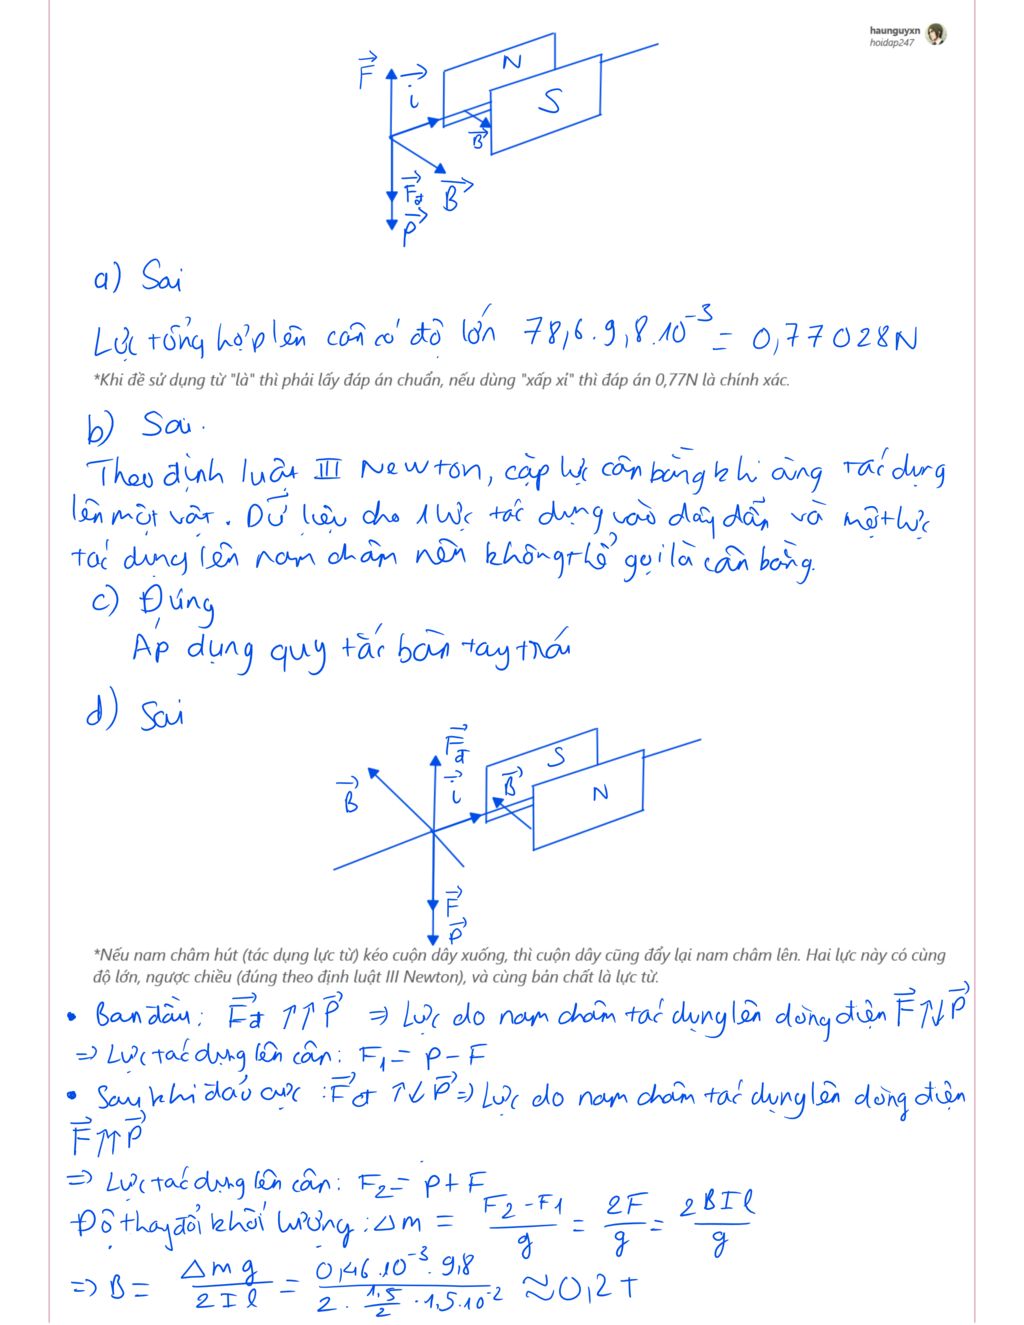 haunguyxn
hoidap247
F
i
N
S
B
Fđ
B
P
a) Sai
Lực tổng hợp lên cân có độ lớn 78,6.9,8.10⁻³ = 0,77028N
*Khi đề sử dụng từ "là" thì phải lấy đáp án chuẩn, nếu dùng "xấp xỉ" thì đáp án 0,77N là chính xác.
b) Sai.
Theo định luật III Newton, cặp lực cân bằng khi cùng tác dụng
lên một vật. Dữ liệu cho 1 lực tác dụng vào dây dẫn và một lực
tác dụng lên nam châm nên không thể gọi là cân bằng.
c) Đúng
Áp dụng quy tắc bàn tay trái
d) Sai
Fđ
B
i
B
S
N
F
P
*Nếu nam châm hút (tác dụng lực từ) kéo cuộn dây xuống, thì cuộn dây cũng đẩy lại nam châm lên. Hai lực này có cùng
độ lớn, ngược chiều (đúng theo định luật III Newton), và cùng bản chất là lực từ.
• Ban đầu: Fđ ↑↑ P => Lực do nam châm tác dụng lên dòng điện F ↑↓ P
=> Lực tác dụng lên cân: F₁ = P - F
• Sau khi đảo cực : Fđ ↑↓ P => Lực do nam châm tác dụng lên dòng điện
F ↑↑ P
=> Lực tác dụng lên cân: F₂ = P + F
Độ thay đổi khối lượng: Δm = (F₂ - F₁)/g = 2F/g = 2BIl/g
=> B = Δmg/2Il = 0,46.10⁻³.9,8/(2.(1,5/2).1,5.10⁻²) ≈ 0,2T